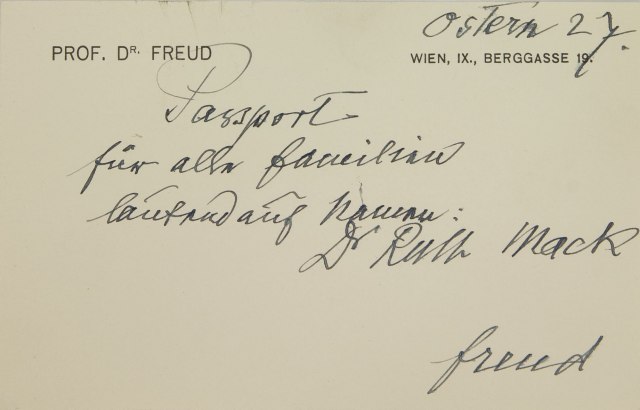 Ostern 27.
PROF. DR. FREUD
WIEN, IX., BERGGASSE 19.
Passport
für alle Familien
lautend auf Namen:
Dr Ruth Mack
Freud